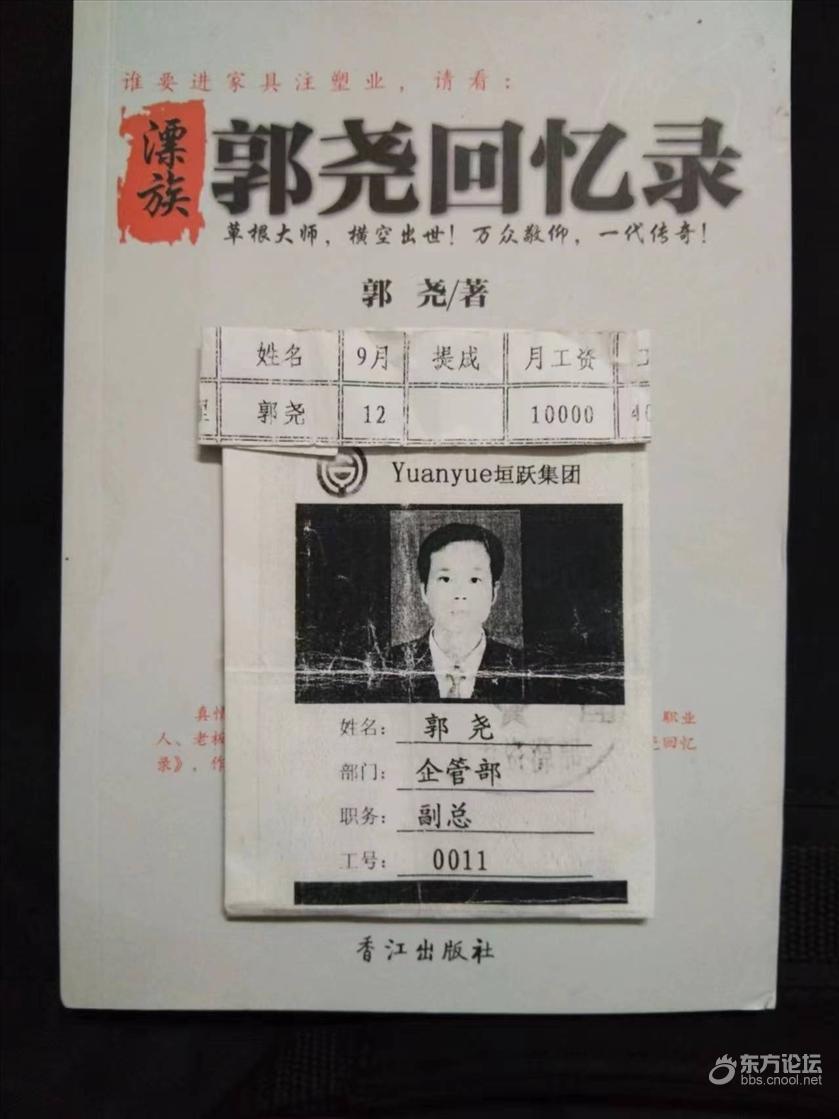 谁要进家具注塑业，请看：
漂族
郭尧回忆录
草根大师，横空出世！万众敬仰，一代传奇！
郭 尧/著
姓名 9月 提成 月工资
郭尧 12 10000 40
Yuanyue垣跃集团
姓名： 郭 尧
部门： 企管部
职务： 副总
工号： 0011
真情 职业
人、老板 回忆
录》，作
香江出版社
东方论坛
bbs.cnool.net